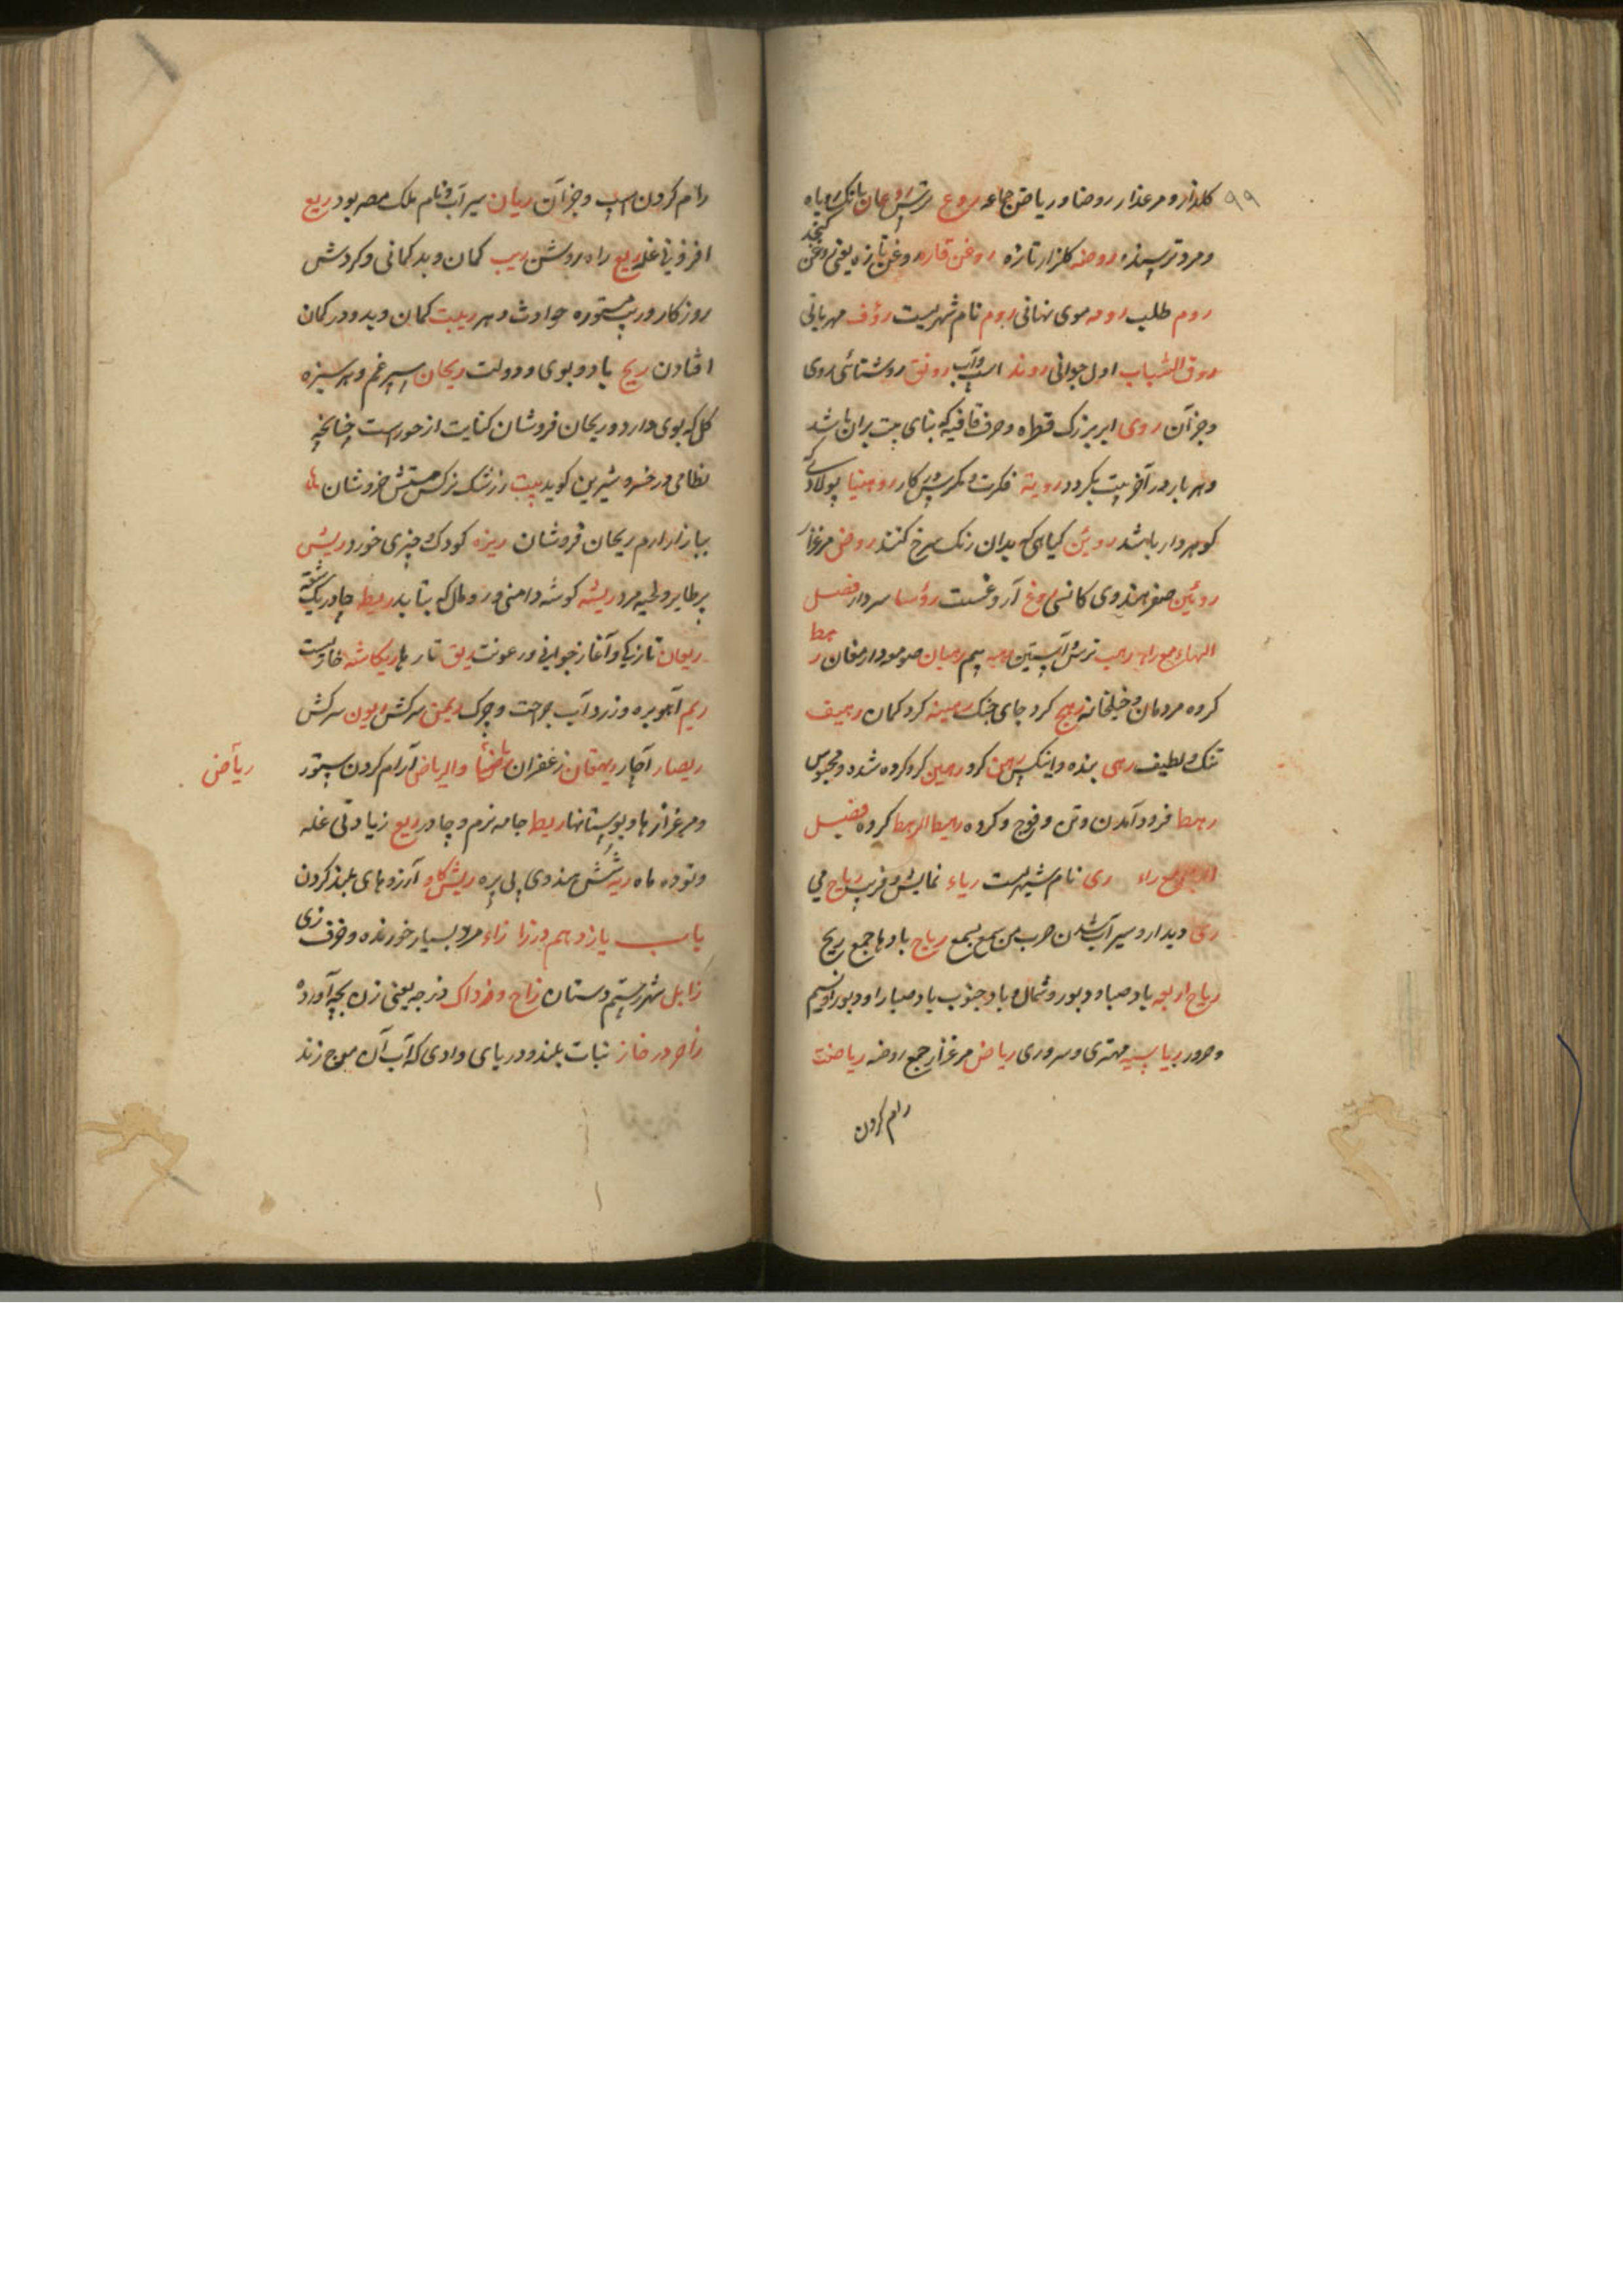 ۹۹ کلزار و مرغذار روضا و ریاض جماعه روع ترس روعان بانک روباه
و مرد ترسنده روضه کلزار تازه روغن قاز روغن تازه یعنی روغن کنجد
روم طلب رومه موی نهانی روم نام شهریست رؤف مهربانی
روق الشباب اول جوانی روند اسب و آب رونق روشنائی روی
و جز آن روی ابر بزرک قطره و حرف قافیه که بنای بیت بران باشد
و هر بار در آخر بیت بکردد رویة فکرت و مکر پس کار روهینا پولادی که
کوهردار باشد روین کیاهی که بدان رنک سرخ کنند روض مرغزار
روئین صفر هندوی کانسی روغ آروغست رؤسا سردار فصل
الهاء مع راء رهب ترس آستین رهبه بیم رهبان صومعه دار مغان رهط
کروه مردمان و خیلخانه رهج کرد جای جنک رهینه کرو کمان رهیف
تنک و لطیف رهی بنده و اینکس رهن کرو رهین کرو کرده شده و محبوس
رهط فرود آمدن و تن و فوج و کروه رهیط الرهط کروه فصل
الیاء مع راء ری نام شهریست ریاء نمایش و فریب ریاح می
ری دیدار و سیرآب شدن ضرب من سمع یسمع ریاح بادها جمع ریح
ریاح اربعه باد صبا و دبور و شمال و باد جنوب باد صبا را و دبور را و نسیم
و صرور ریاسیه مهتری و سروری ریاض مرغزار جمع روضه ریاضت
رام کردن
رام کردن اسپ و جز آن ریان سیرآب و نام ملک مصر بود ریع
افزونی غله ریع راه روشن ریب کمان و بد کمانی و کردش
روزکار و ریب ستوره حوادث دهر ریبت کمان و بد و در کمان
افتادن ریح باد و بوی و دولت ریحان اسپرغم و هر سبزه
کل که بوی دارد و ریحان فروشان کنایت از حورست چنانچه
نظامی در خسرو شیرین کوید بیت ز رشک نرکس مستش خروشان ها
ببازار ارم ریحان فروشان ریزه کودک چیزی خورد ریش
پر طایر و لحیه مرد ریشه کوشه دامنی و رومال که بتابد ریطه چادر یک شقه
ریعان تازیکی و آغاز جوانی و رعونت ریق تار ها ریکاشه خارپست
ریم آهوبره و زرداب جراحت و چرک ریمن سرکش ریون سرکش
ریصار آچار ریهقان زعفران والریاض آرام کردن ستور
ریآض
و مرغزارها و بوستانها ریط جامه نرم و چادر ریع زیادتی غله
و توده ماه ریه شش هندوی پی پره ریش کاو آرزوهای بلند کردن
باب یازدهم در زا زاء مرد بسیار خورنده و حرف زی
زابل شهر رستم دستان زاج و زداک دز جه یعنی زن بچه آورده
زاخر در خاز نبات بلند و دریای وادی که آب آن موج زند